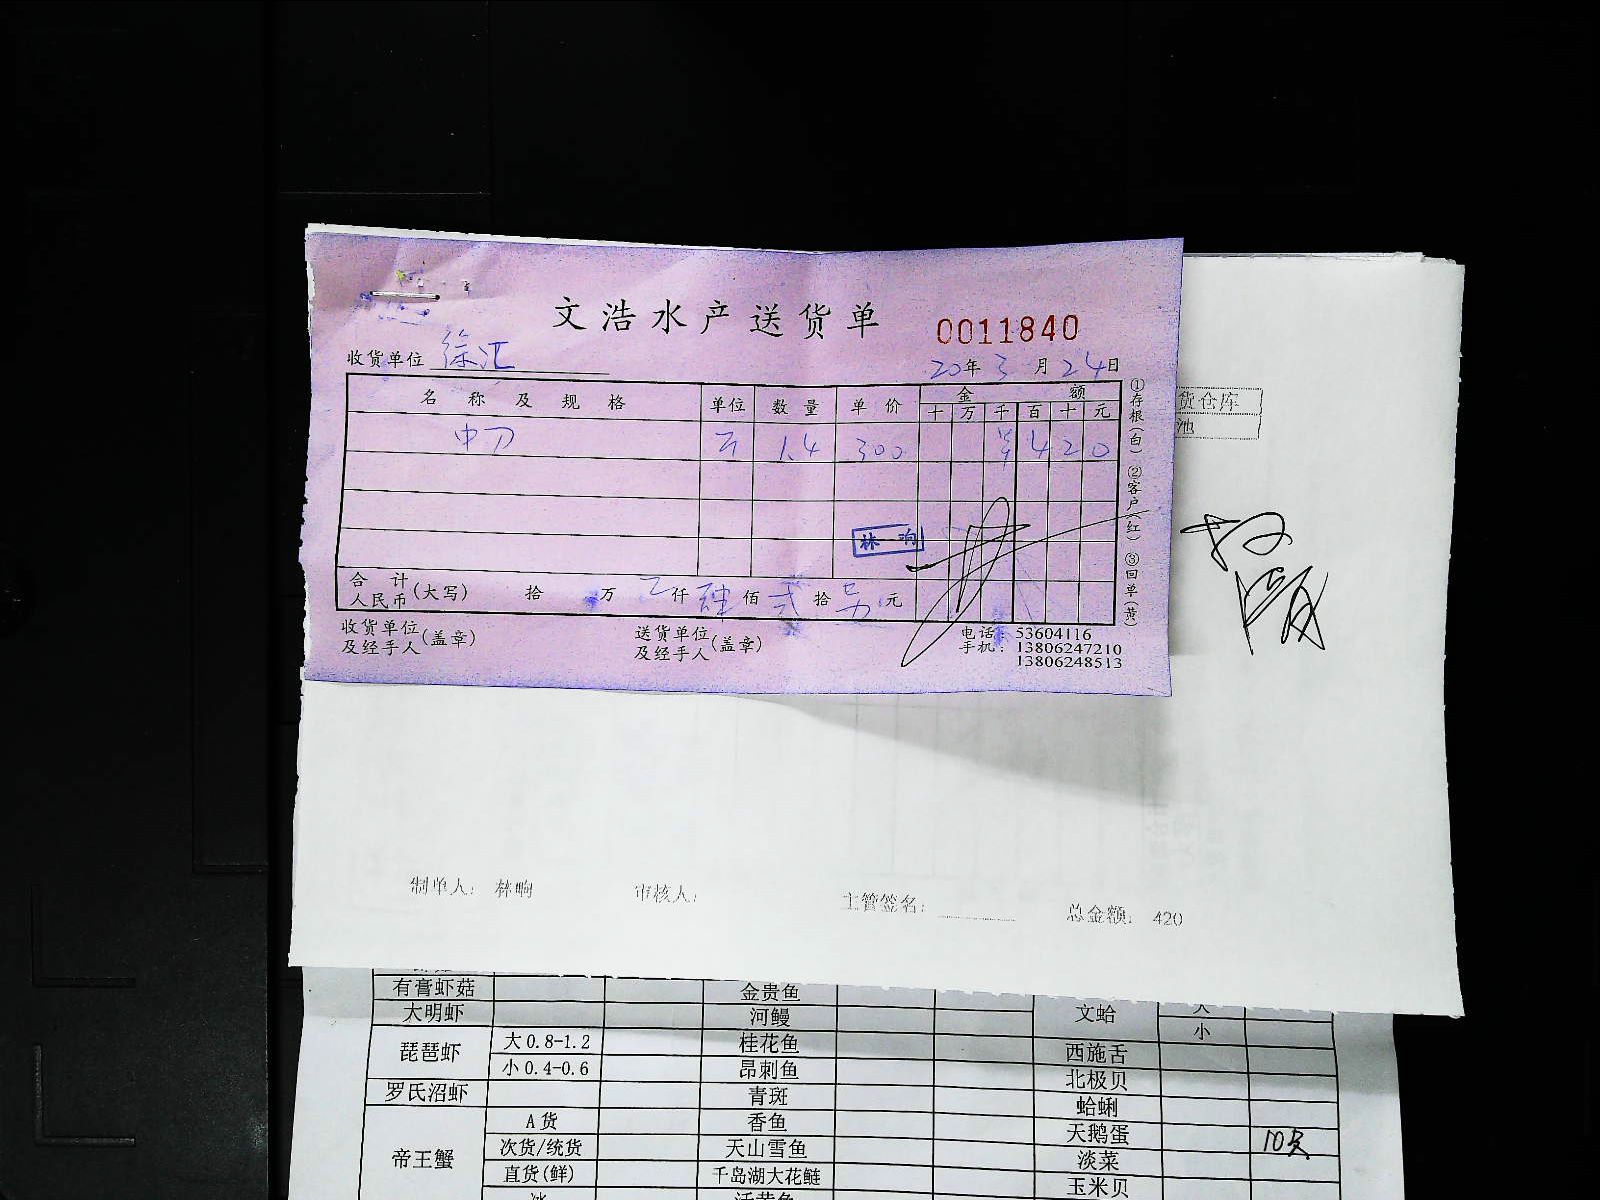 文浩水产送货单
0011840
收货单位 徐汇
20年3月24日
名称及规格 单位 数量 单价 金额
十 万 千 百 十 元
中刀 斤 1.4 300 ¥ 4 2 0
林晌
合计
人民币(大写) 拾 万 仟 佰 拾 元
收货单位
及经手人(盖章)
送货单位
及经手人(盖章)
电话:53604116
手机:13806247210
13806248513
①存根(白) ②客户(红) ③回单(黄)
货仓库
池
制单人: 林晌 审核人: 主管签名: 总金额: 420
有膏虾菇 金贵鱼
大明虾 河鳗 文蛤 大
小
琵琶虾 大0.8-1.2 桂花鱼 西施舌
小0.4-0.6 昂刺鱼 北极贝
罗氏沼虾 青斑 蛤蜊
帝王蟹 A货 香鱼 天鹅蛋 10只
次货/统货 天山雪鱼 淡菜
直货(鲜) 千岛湖大花鲢 玉米贝